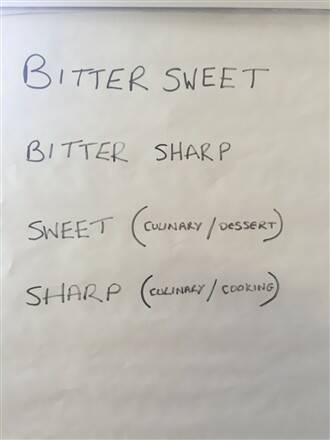 BITTER SWEET
BITTER SHARP
SWEET (CULINARY/DESSERT)
SHARP (CULINARY/COOKING)